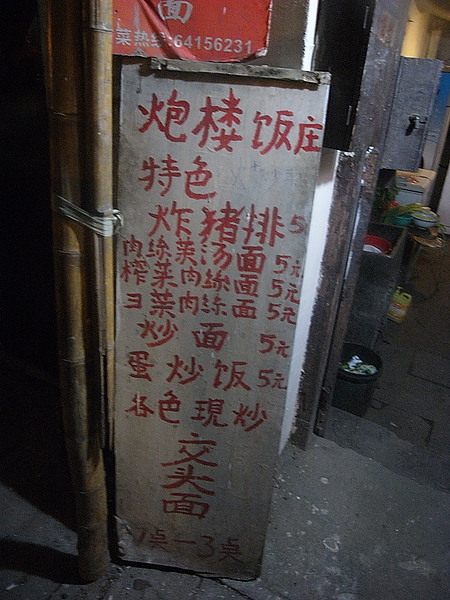 面
菜热线:64156231
炮楼饭庄
特色
炸猪排5
肉丝菜汤面5元
榨菜肉丝面5元
ヨ菜肉丝面5元
炒面5元
蛋炒饭5元
各色現炒
交头面
7桌一3桌